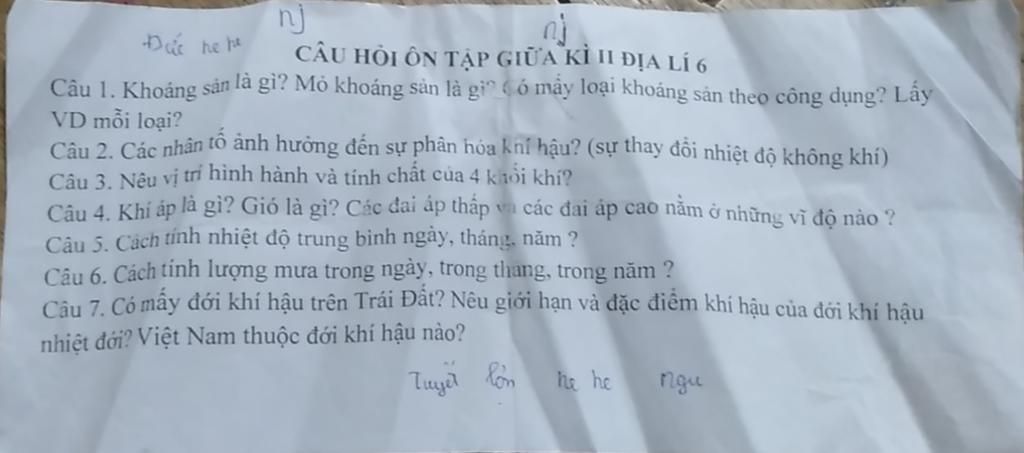 nj
nj
Đức he he
CÂU HỎI ÔN TẬP GIỮA KÌ II ĐỊA LÍ 6
Câu 1. Khoáng sản là gì? Mỏ khoáng sản là gì? Có mấy loại khoáng sản theo công dụng? Lấy
VD mỗi loại?
Câu 2. Các nhân tố ảnh hưởng đến sự phân hóa khí hậu? (sự thay đổi nhiệt độ không khí)
Câu 3. Nêu vị trí hình hành và tính chất của 4 khối khí?
Câu 4. Khí áp là gì? Gió là gì? Các đai áp thấp và các đai áp cao nằm ở những vĩ độ nào ?
Câu 5. Cách tính nhiệt độ trung bình ngày, tháng, năm ?
Câu 6. Cách tính lượng mưa trong ngày, trong tháng, trong năm ?
Câu 7. Có mấy đới khí hậu trên Trái Đất? Nêu giới hạn và đặc điểm khí hậu của đới khí hậu
nhiệt đới? Việt Nam thuộc đới khí hậu nào?
Tuyết lợn he he ngu